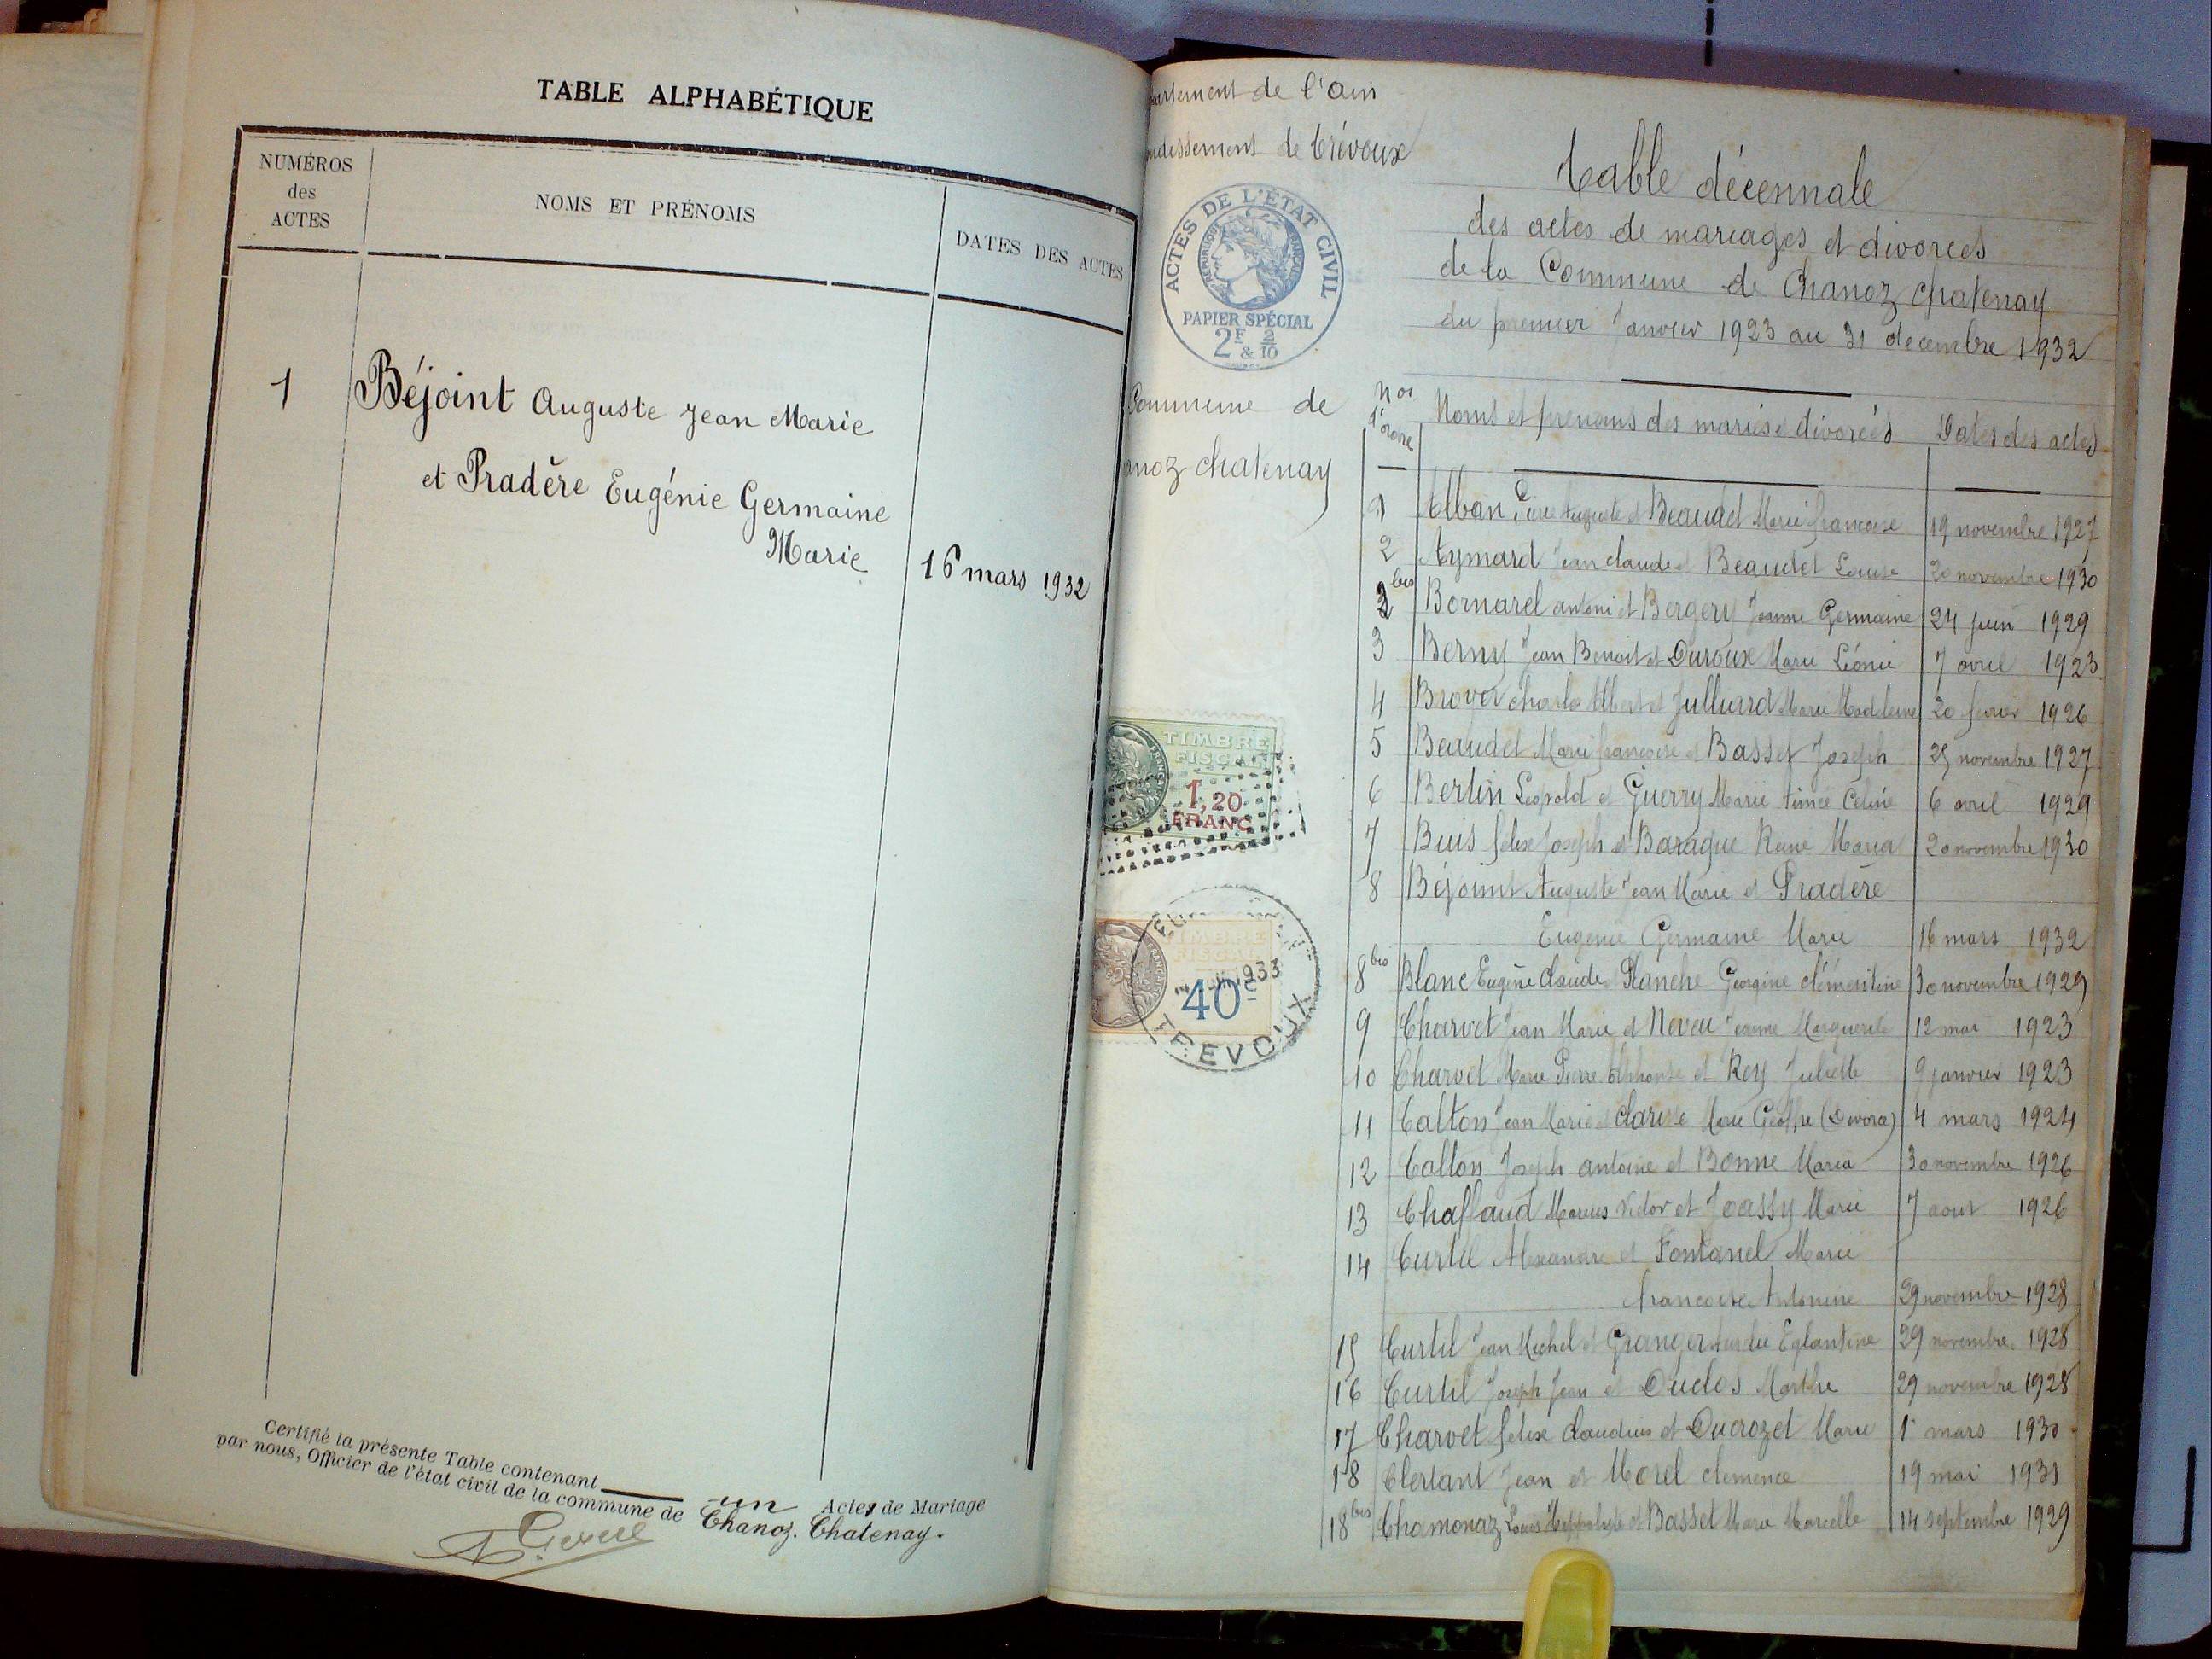 TABLE ALPHABÉTIQUE
NUMÉROS
des
ACTES
NOMS ET PRÉNOMS
DATES DES ACTES
1 Béjoint Auguste Jean Marie
et Pradère Eugénie Germaine
Marie 16 mars 1932
Certifié la présente Table contenant un Actes de Mariage
par nous, Officier de l'état civil de la commune de Chanoz. Chatenay.
de l'ain
de Trévoux
ACTES DE L'ÉTAT CIVIL
RÉPUBLIQUE FRANÇAISE
PAPIER SPÉCIAL
2F & 2/10
Commune de
chatenay
TIMBRE
FISCAL
1,20
FRANC
TIMBRE
FISCAL
1933
40c
TREVOUX
Table décennale
des actes de mariages et divorces
de la Commune de Chanoz Chatenay
du premier Janvier 1923 au 31 decembre 1932
Nos d'ordre Noms et prenoms des mariés divorcés Dates des actes
1 Alban Pierre Auguste et Beaudet Marie francoise 19 novembre 1927
2 Aymard Jean claude Beaudet Louise 20 novembre 1930
2 bis Bornarel antoni et Bergery Jeanne Germaine 24 juin 1929
3 Berny Jean Benoit et Duroux Marie Léonie 7 avril 1923
4 Broyer charle Albert et Julliard Marie Madeleine 20 fevrier 1926
5 Beaudet Marie francoise et Basset Joseph 25 novembre 1927
6 Bertin Léopold et Guerry Marie Aimée Celine 6 avril 1929
7 Buis felix Joseph et Baraque Reine Maria 20 novembre 1930
8 Béjoint Auguste Jean Marie et Pradère
Eugenie Germaine Marie 16 mars 1932
8 bis Blanc Eugène Claude Planche Georgine clémentine 30 novembre 1929
9 Charvet Jean Marie et Neveu Jeanne Marguerite 12 mai 1923
10 Charvet Marie Pierre Alphonse et Rey Juliette 9 janvier 1923
11 Catton Jean Marie Clarisse Marie (Divorce) 4 mars 1924
12 Catton Joseph antoine et Bonne Maria 30 novembre 1926
13 Chaffaud Marius Victor et Joassy Marie 7 aout 1926
14 Curtil Alexandre et Fontanel Marie
francoise Antonine 29 novembre 1928
15 Curtil Jean Michel et Granger Eglantine 29 novembre 1928
16 Curtil Joseph Jean et Duclos Marthe 29 novembre 1928
17 Charvet felix Claudius et Ducrozet Marie 1 mars 1930
18 Clertant Jean et Morel clemence 19 mai 1931
18 bis Chamonaz Louis Hyppolyte et Basset Marie Marcelle 14 septembre 1929